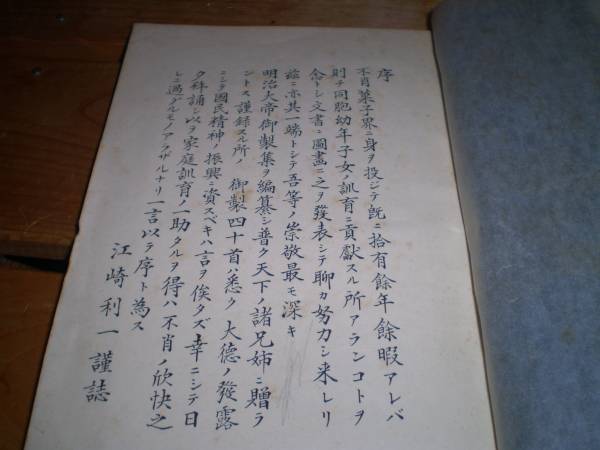 序
不肖菓子界ニ身ヲ投ジテ既ニ拾有餘年餘暇アレバ
則チ同胞幼年子女ノ訓育ニ貢獻スル所アランコトヲ
念トシ文書ニ圖畫ニ之ヲ發表シテ聊カ努力シ来レリ
玆ニ亦其一端トシテ吾等ノ崇敬最モ深キ
明治大帝御製集ヲ編纂シ普ク天下ノ諸兄姉ニ贈ラ
ントス謹録スル所ノ 御製四十首ハ悉ク 大德ノ發露
ニシテ國民精神ノ振興ニ資スベキハ言ヲ俟タズ幸ニシテ日
夕拜誦シ以テ家庭訓育ノ一助タルヲ得バ不肖ノ欣快之
レニ過グルモノアラザルナリ一言以テ序ト為ス
江崎利一謹誌